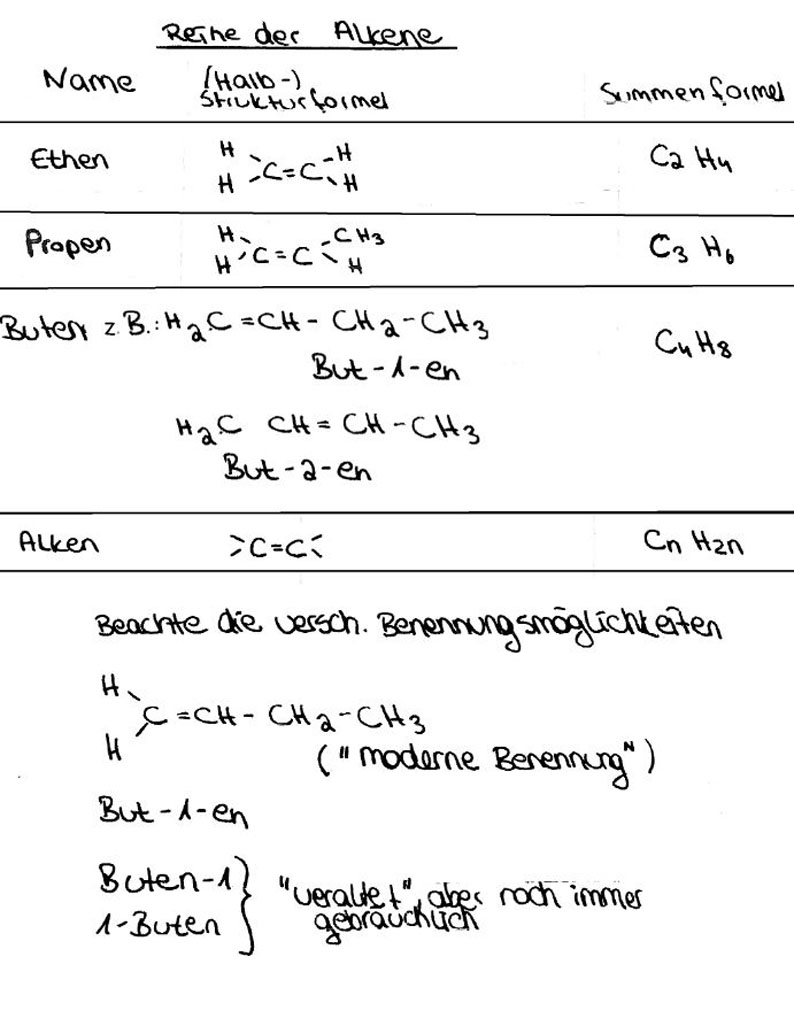 Reihe der Alkene
Name (Halb-) Summenformel
Strukturformel
Ethen H H C=C H H C2 H4
Propen H H C=C CH3 H C3 H6
Buten z.B.: H2C =CH - CH2 - CH3 C4H8
But-1-en
H2C CH = CH - CH3
But-2-en
Alken >C=C< Cn H2n
Beachte die versch. Benennungsmöglichkeiten
H
C =CH - CH2 - CH3
H
("moderne Benennung")
But-1-en
Buten-1 } "veraltet", aber noch immer
1-Buten gebräuchlich